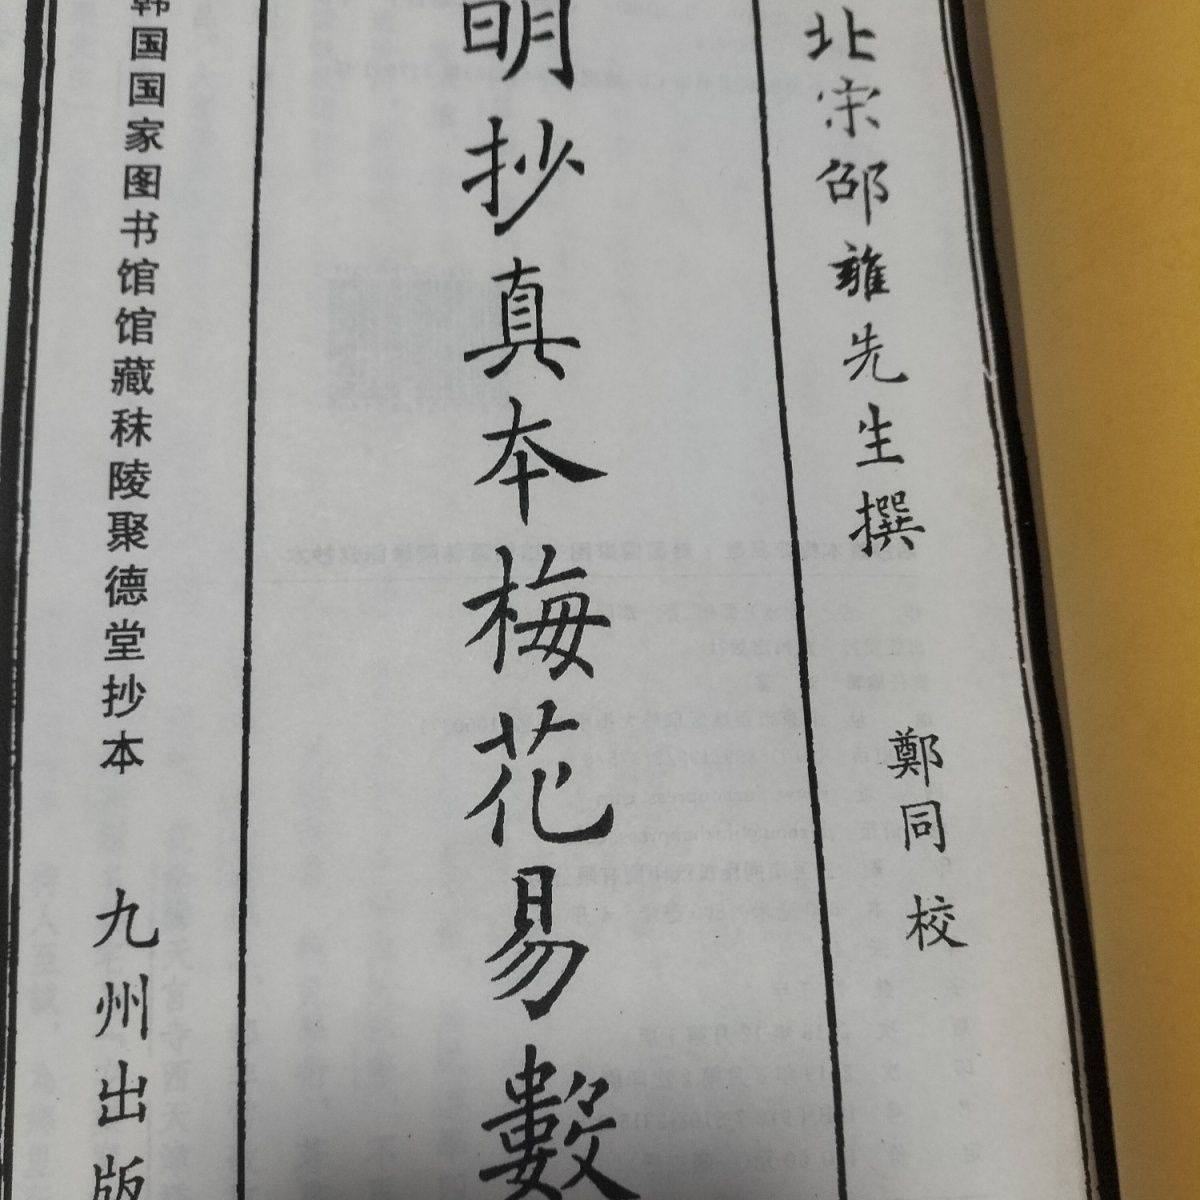 北宋邵雍先生撰 鄭同校
明抄真本梅花易數
韩国国家图书馆馆藏秣陵聚德堂抄本 九州出版